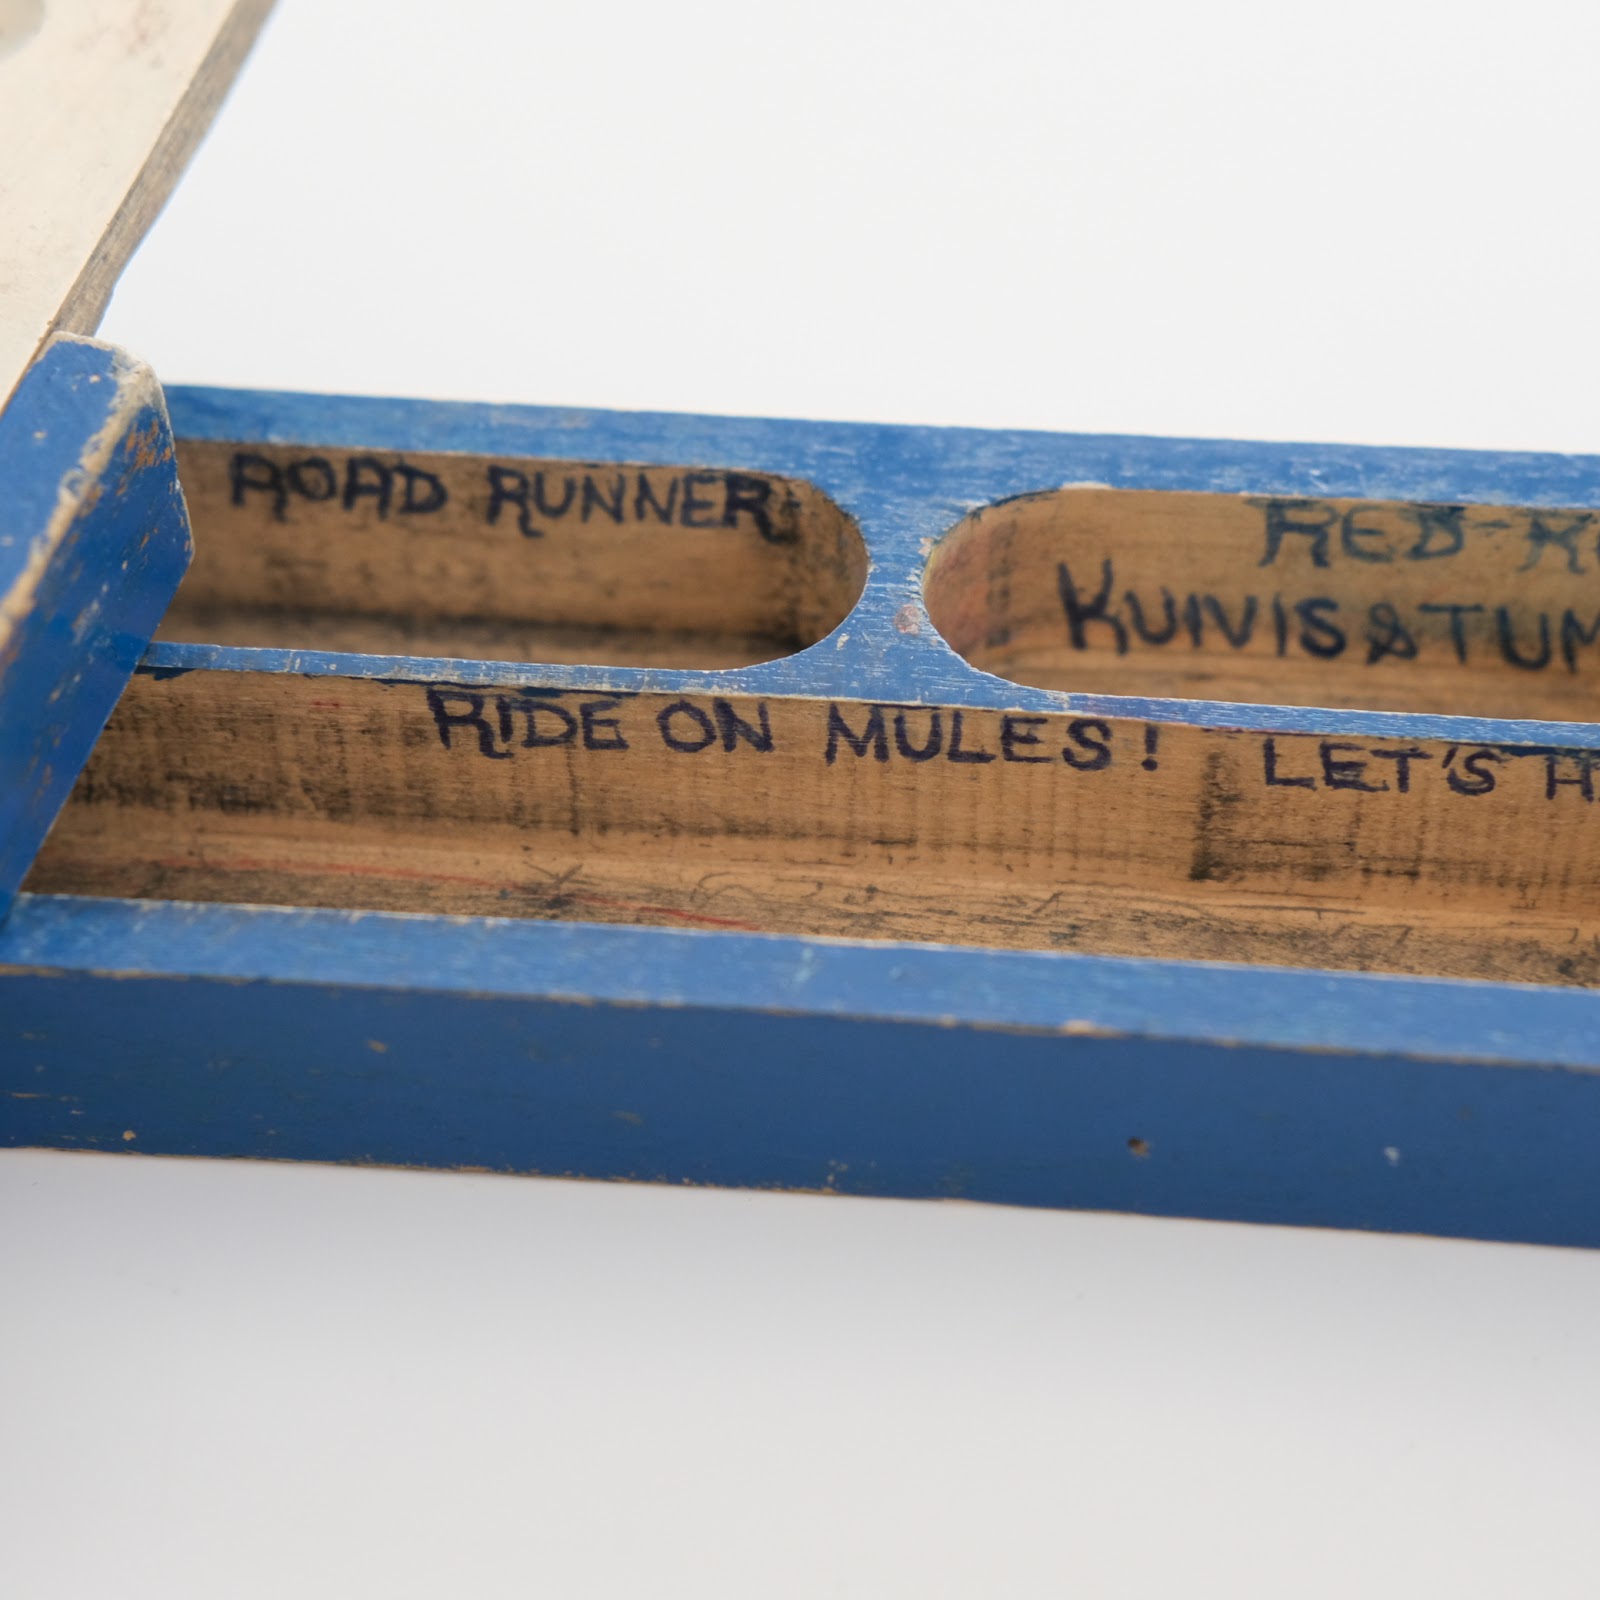 ROAD RUNNER
RED-R
KUIVIS & TUM
RIDE ON MULES! LET'S H